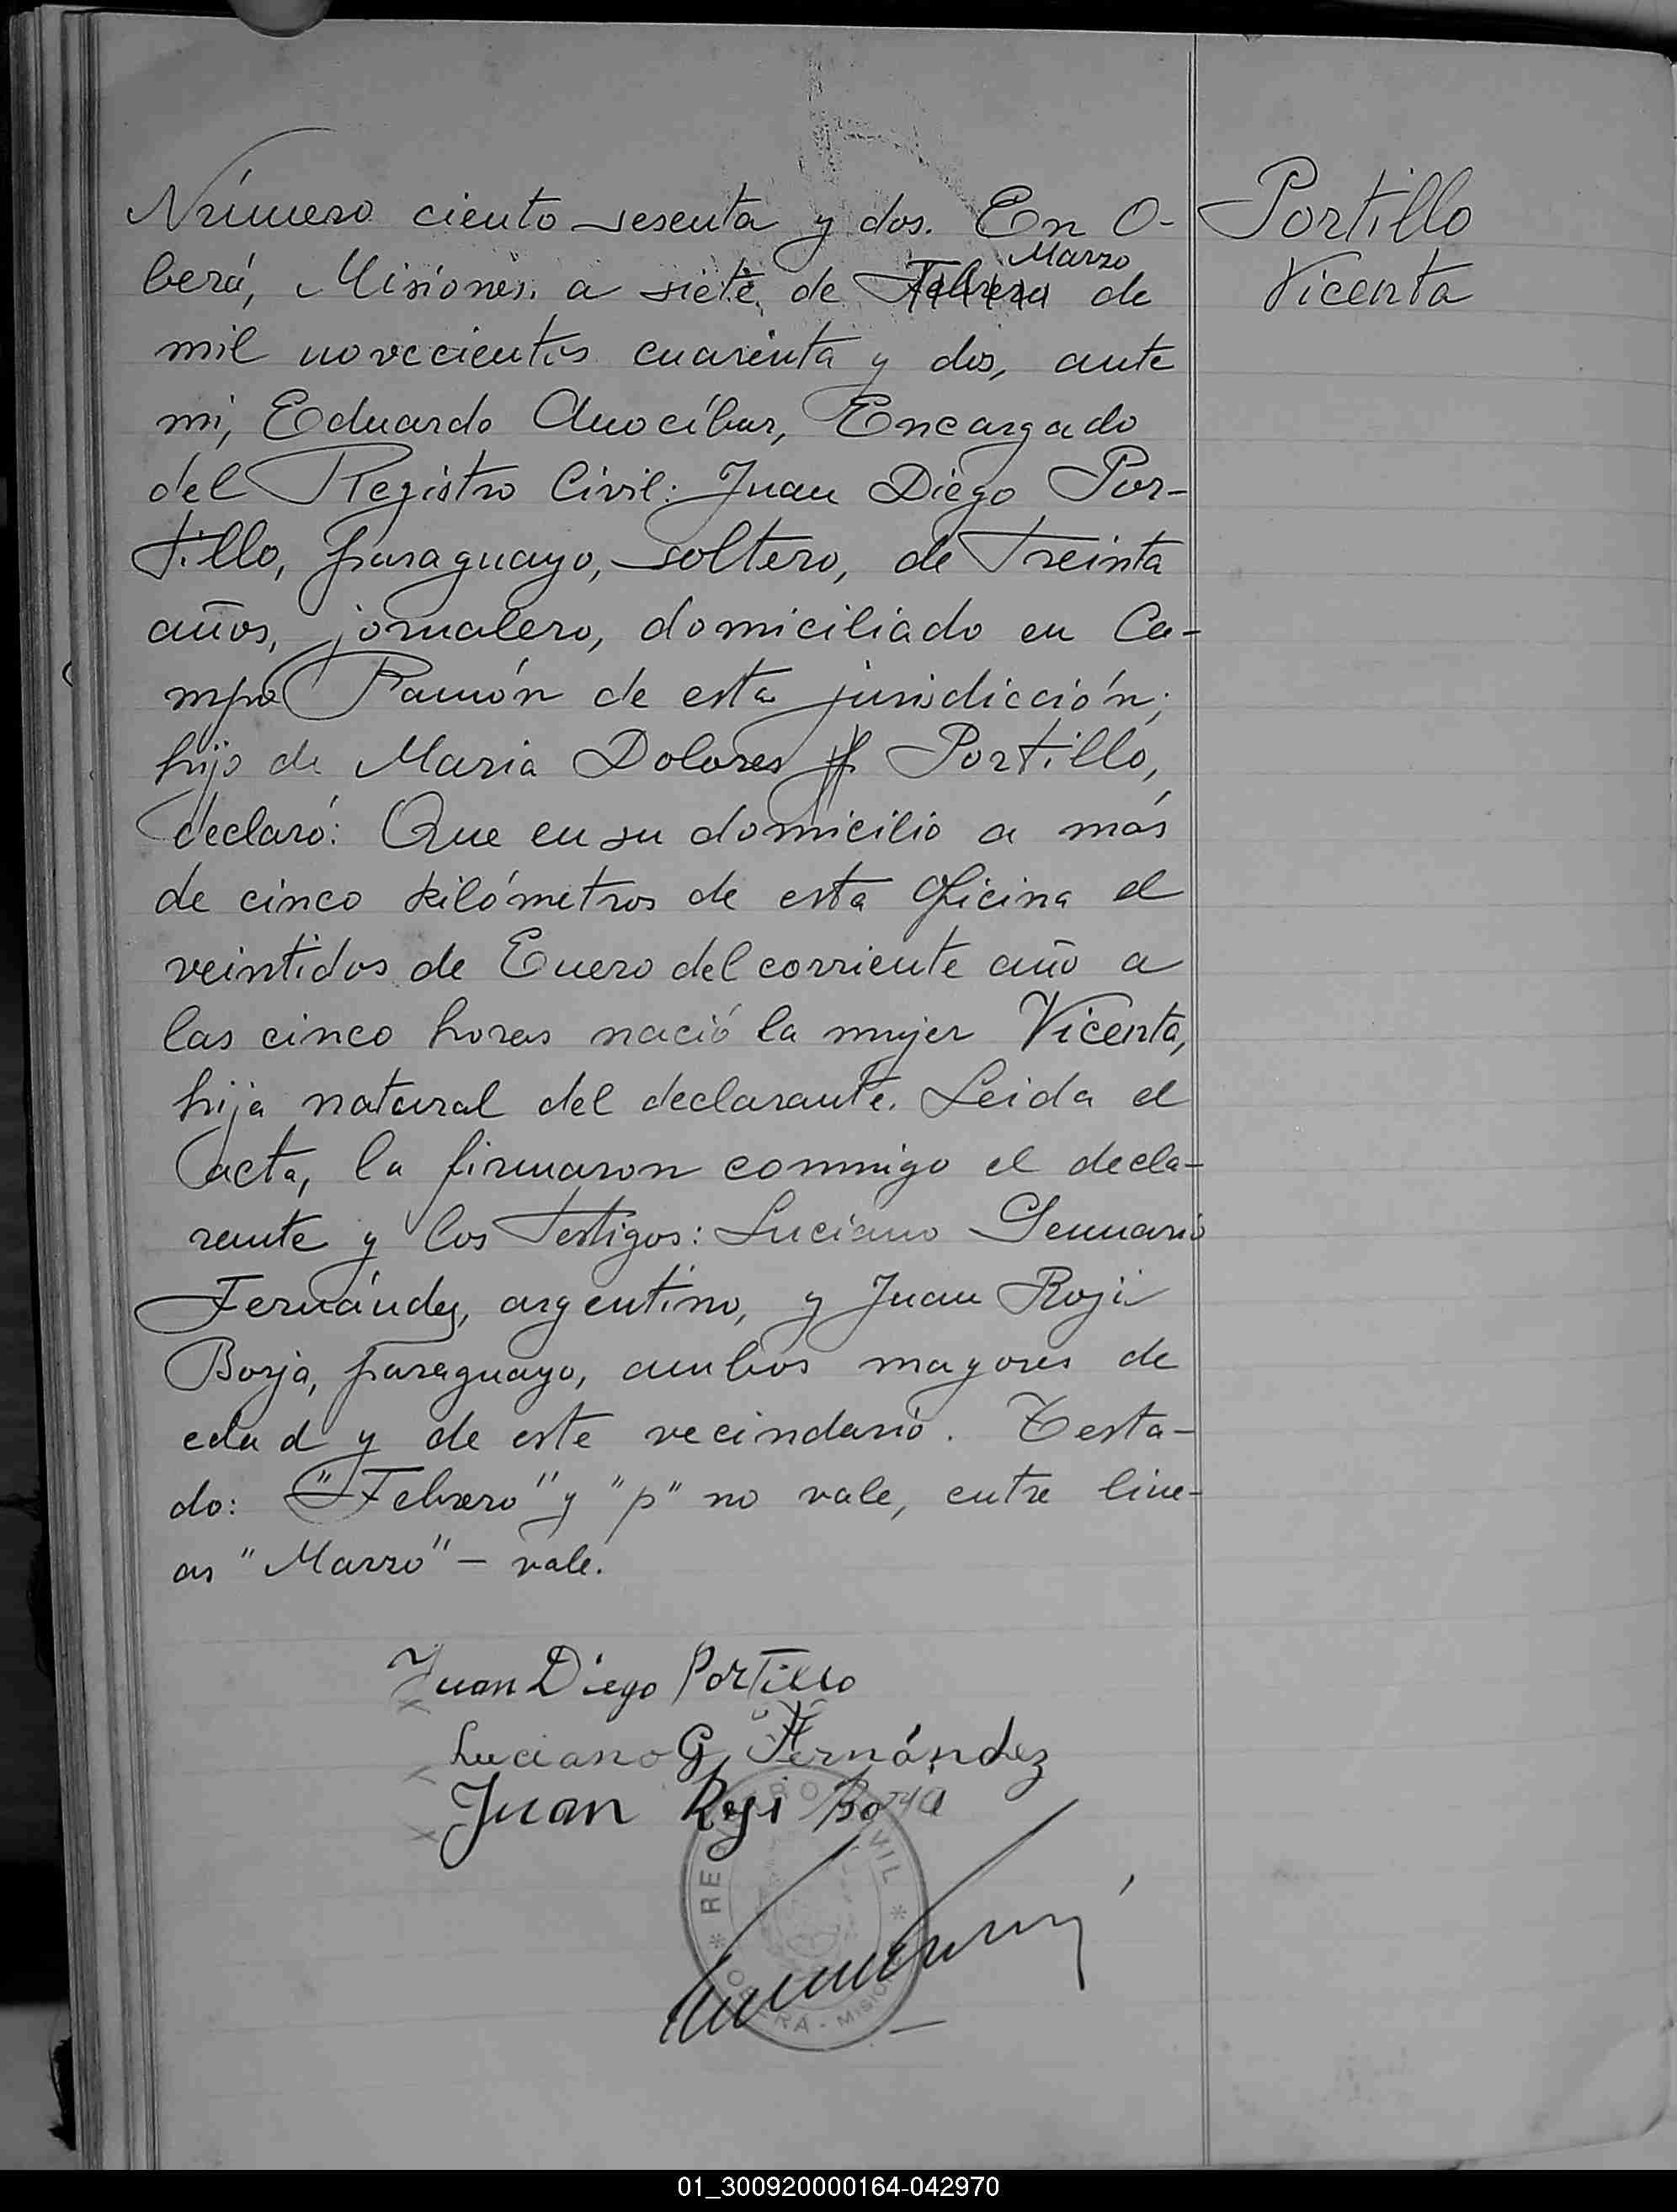 Número ciento sesenta y dos. En O-
berá, Misiones. a siete de Febrero Marzo de
mil novecientos cuarenta y dos, ante
mi, Eduardo Anocíbar, Encargado
del Registro Civil: Juan Diego Por-
tillo, paraguayo, soltero, de treinta
años, jornalero, domiciliado en Ca-
mpo Ramón de esta jurisdicción;
hijo de Maria Dolores p Portillo,
declaró: Que en su domicilio a más
de cinco kilómetros de esta Oficina el
veintidos de Enero del corriente año a
las cinco horas nació la mujer Vicenta,
hija natural del declarante. Leida el
acta, la firmaron conmigo el decla-
rante y los testigos: Luciano Genuario
Fernández, argentino, y Juan Roji
Borja, paraguayo, ambos mayores de
edad y de este vecindario. Testa-
do: "Febrero" y "p" no vale, entre line-
as "Marzo" - vale.
Portillo
Vicenta
Juan Diego Portillo
Luciano G. Fernández
Juan Roji Borja
REGISTRO CIVIL
OBERÁ - MISIONES
01_300920000164-042970